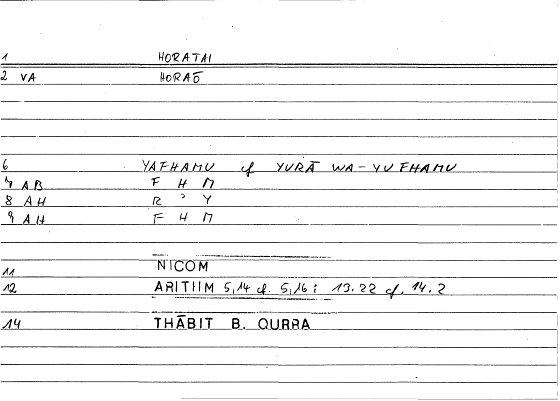 1 HORATAI
2 VA HORAŌ
6 YAFHAMU cf YURĀ WA-YUFHAMU
7 AB F H M
8 AH R ʾ Y
9 AH F H M
11 NICOM
12 ARITIIM 5,14 cf. 5,16; 13.22 cf. 14.2
14 THĀBIT B. QURRA